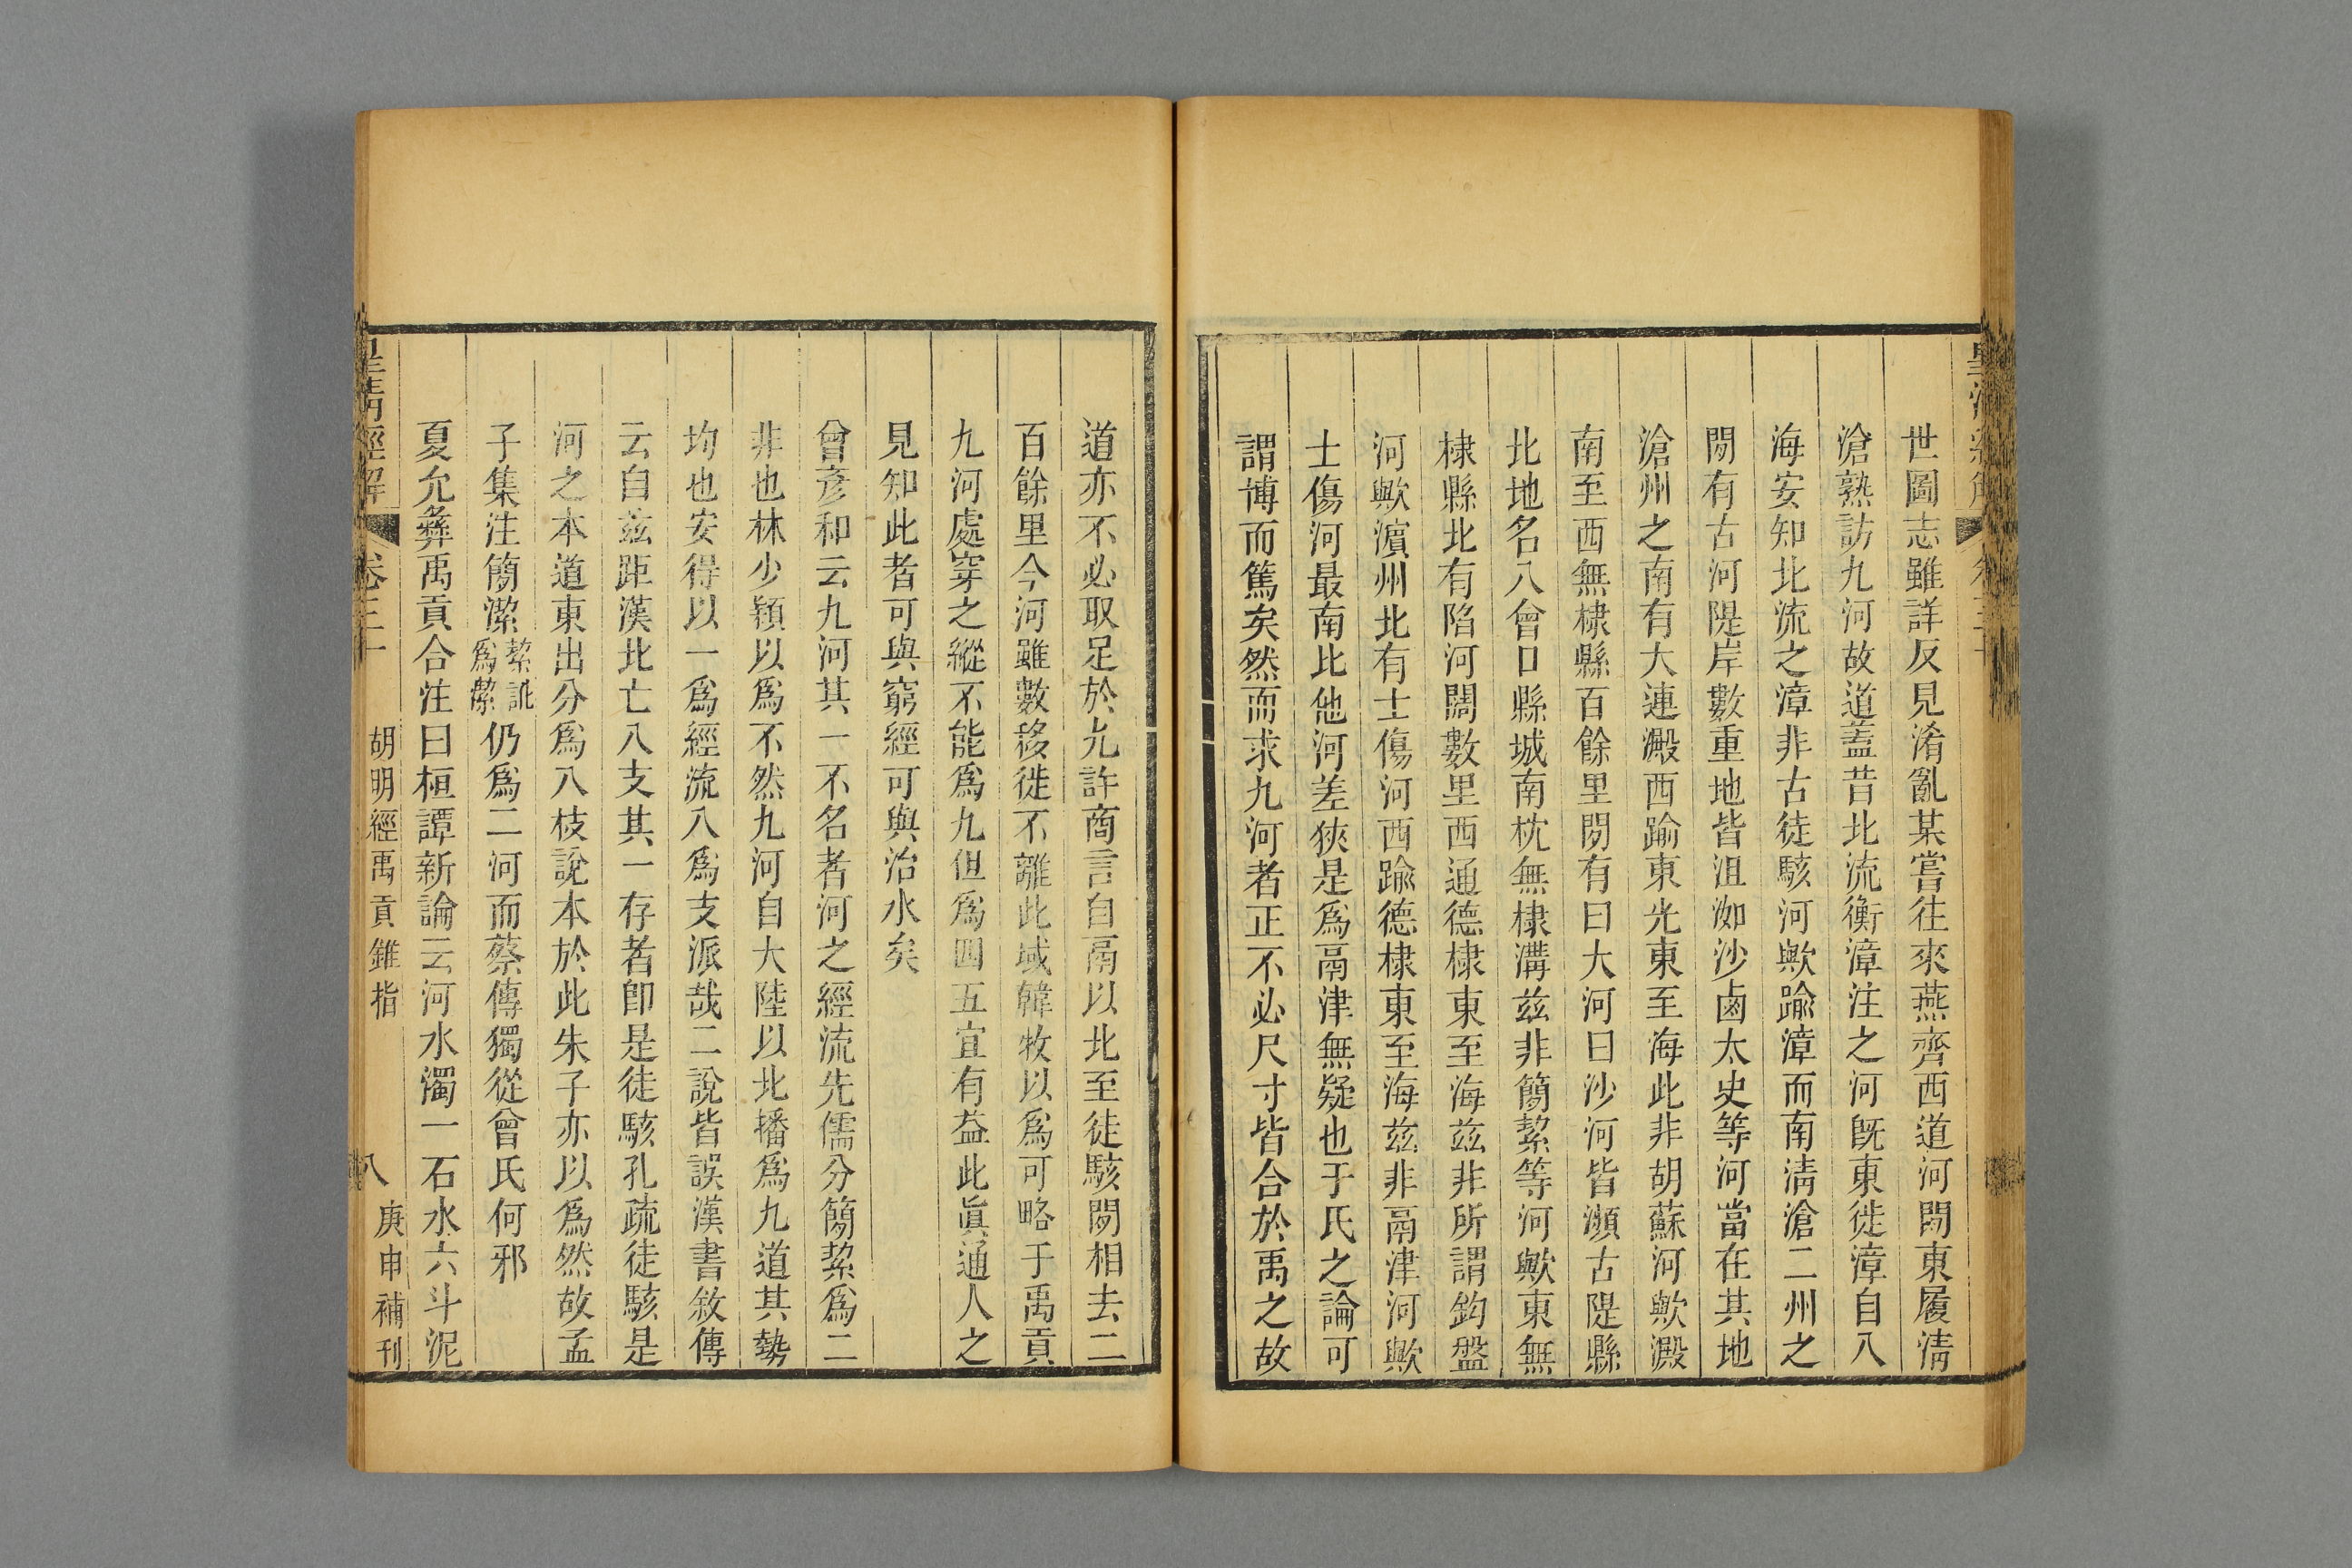 世圖志雖詳反見淆亂某嘗往來燕齊西道河閒東履淸
滄熟訪九河故道蓋昔北流衡漳注之河旣東徙漳自入
海安知北流之漳非古徒駭河歟踰漳而南淸滄二州之
閒有古河隄岸數重地皆沮洳沙鹵太史等河當在其地
滄州之南有大連澱西踰東光東至海此非胡蘇河歟澱
南至西無棣縣百餘里閒有曰大河曰沙河皆瀕古隄縣
北地名八會口縣城南枕無棣溝兹非簡絜等河歟東無
棣縣北有陷河闊數里西通德棣東至海兹非所謂鉤盤
河歟濱州北有士傷河西踰德棣東至海兹非鬲津河歟
士傷河最南比他河差狹是爲鬲津無疑也于氏之論可
謂博而篤矣然而求九河者正不必尺寸皆合於禹之故
道亦不必取足於九許商言自鬲以北至徒駭閒相去二
百餘里今河雖數移徙不離此域韓牧以爲可略于禹貢
九河處穿之縱不能爲九但爲四五宜有益此眞通人之
見知此者可與窮經可與治水矣
曾彥和云九河其一不名者河之經流先儒分簡絜爲二
非也林少穎以爲不然九河自大陸以北播爲九道其勢
均也安得以一爲經流八爲支派哉二說皆誤漢書敘傳
云自兹距漢北亡八支其一存者卽是徒駭孔疏徒駭是
河之本道東出分爲八枝說本於此朱子亦以爲然故孟
子集注簡潔絜訛爲潔仍爲二河而蔡傳獨從曾氏何邪
夏允彝禹貢合注曰桓譚新論云河水濁一石水六斗泥
皇清經解 卷三十 胡明經禹貢錐指 八 庚申補刊